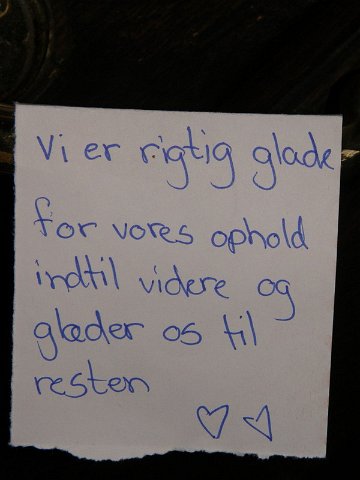 Vi er rigtig glade
for vores ophold
indtil videre og
glæder os til
resten
♡ ♡